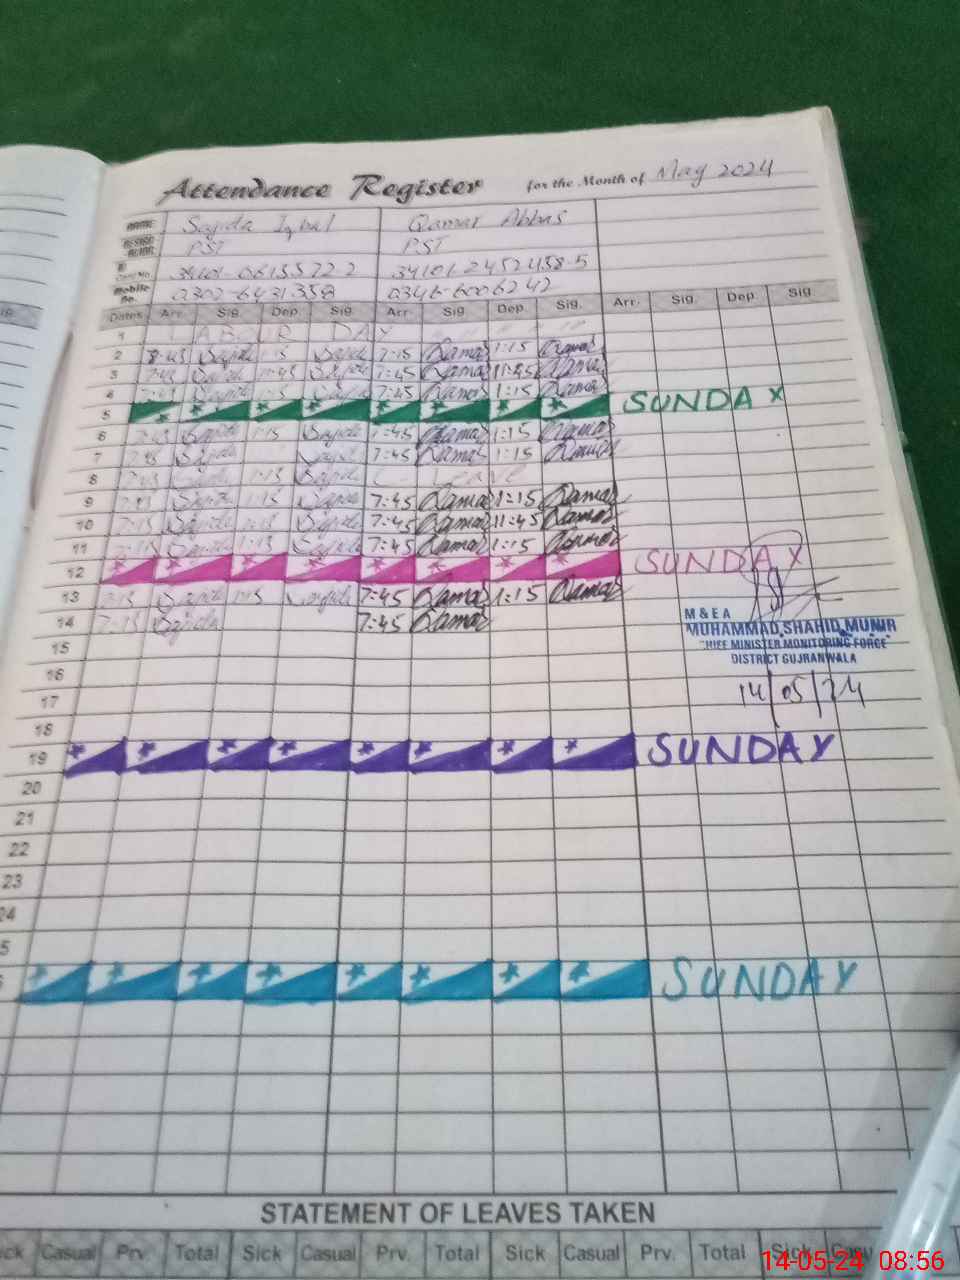 Attendance Register for the Month of May 2024
NAME Sajida Iqbal Qamar Abbas
PST PST
Card No. 34101-0613572-2 34101-2452438-5
Mobile No. 0302-6431358 0346-6006242
Dates Arr. Sig. Dep. Sig. Arr. Sig. Dep. Sig. Arr. Sig. Dep. Sig.
1 LABOUR DAY
2 Sajida 1:15 Sajida 7:15 Qamar 1:15 Qamar
3 Sajida 11:45 Sajida 7:45 Qamar 11:45 Qamar
4 Sajida Sajida 7:45 Qamar 1:15 Qamar
5 SUNDAY
6 Sajida 1:15 Sajida 7:45 Qamar 1:15 Qamar
7 Sajida Sajida 7:45 Qamar 1:15 Qamar
8 Sajida 1:15 Sajida LEAVE
9 Sajida 1:15 Sajida 7:45 Qamar 1:15 Qamar
10 Sajida Sajida 7:45 Qamar 11:45 Qamar
11 Sajida 1:15 Sajida 7:45 Qamar 1:15 Qamar
12 SUNDAY
13 Sajida 1:15 Sajida 7:45 Qamar 1:15 Qamar
14 Sajida 7:45 Qamar
M & E A
MUHAMMAD SHAHID MUNIR
CHIEF MINISTER MONITORING FORCE
DISTRICT GUJRANWALA
14/05/24
15
16
17
18
19 SUNDAY
20
21
22
23
24
5
SUNDAY
STATEMENT OF LEAVES TAKEN
Sick Casual Prv. Total Sick Casual Prv. Total Sick Casual Prv. Total Sick
14-05-24 08:56